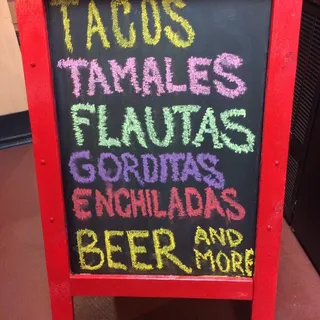 TACOS
TAMALES
FLAUTAS
GORDITAS
ENCHILADAS
BEER AND MORE